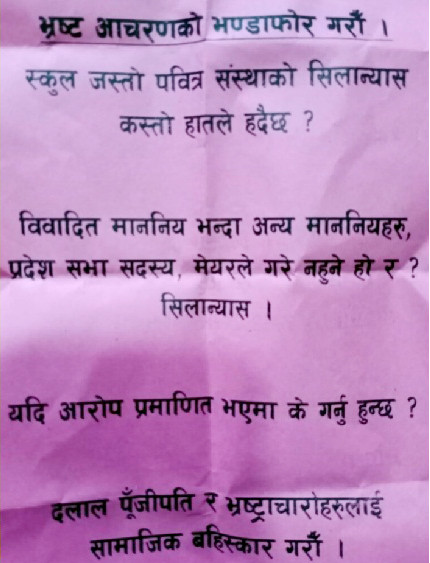 भ्रष्ट आचरणको भण्डाफोर गरौँ ।
स्कुल जस्तो पवित्र संस्थाको सिलान्यास
कस्तो हातले हुदैछ ?
विवादित माननिय भन्दा अन्य माननियहरु,
प्रदेश सभा सदस्य, मेयरले गरे नहुने हो र ?
सिलान्यास ।
यदि आरोप प्रमाणित भएमा के गर्नु हुन्छ ?
दलाल पूँजीपति र भ्रष्ट्राचारीहरुलाई
सामाजिक बहिस्कार गरौँ ।